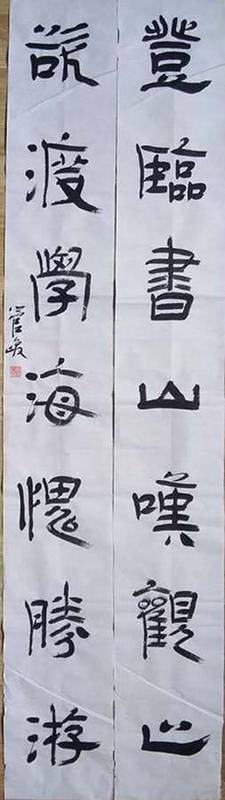 登臨書山嘆觀止
欲渡學海愧勝游
管峻